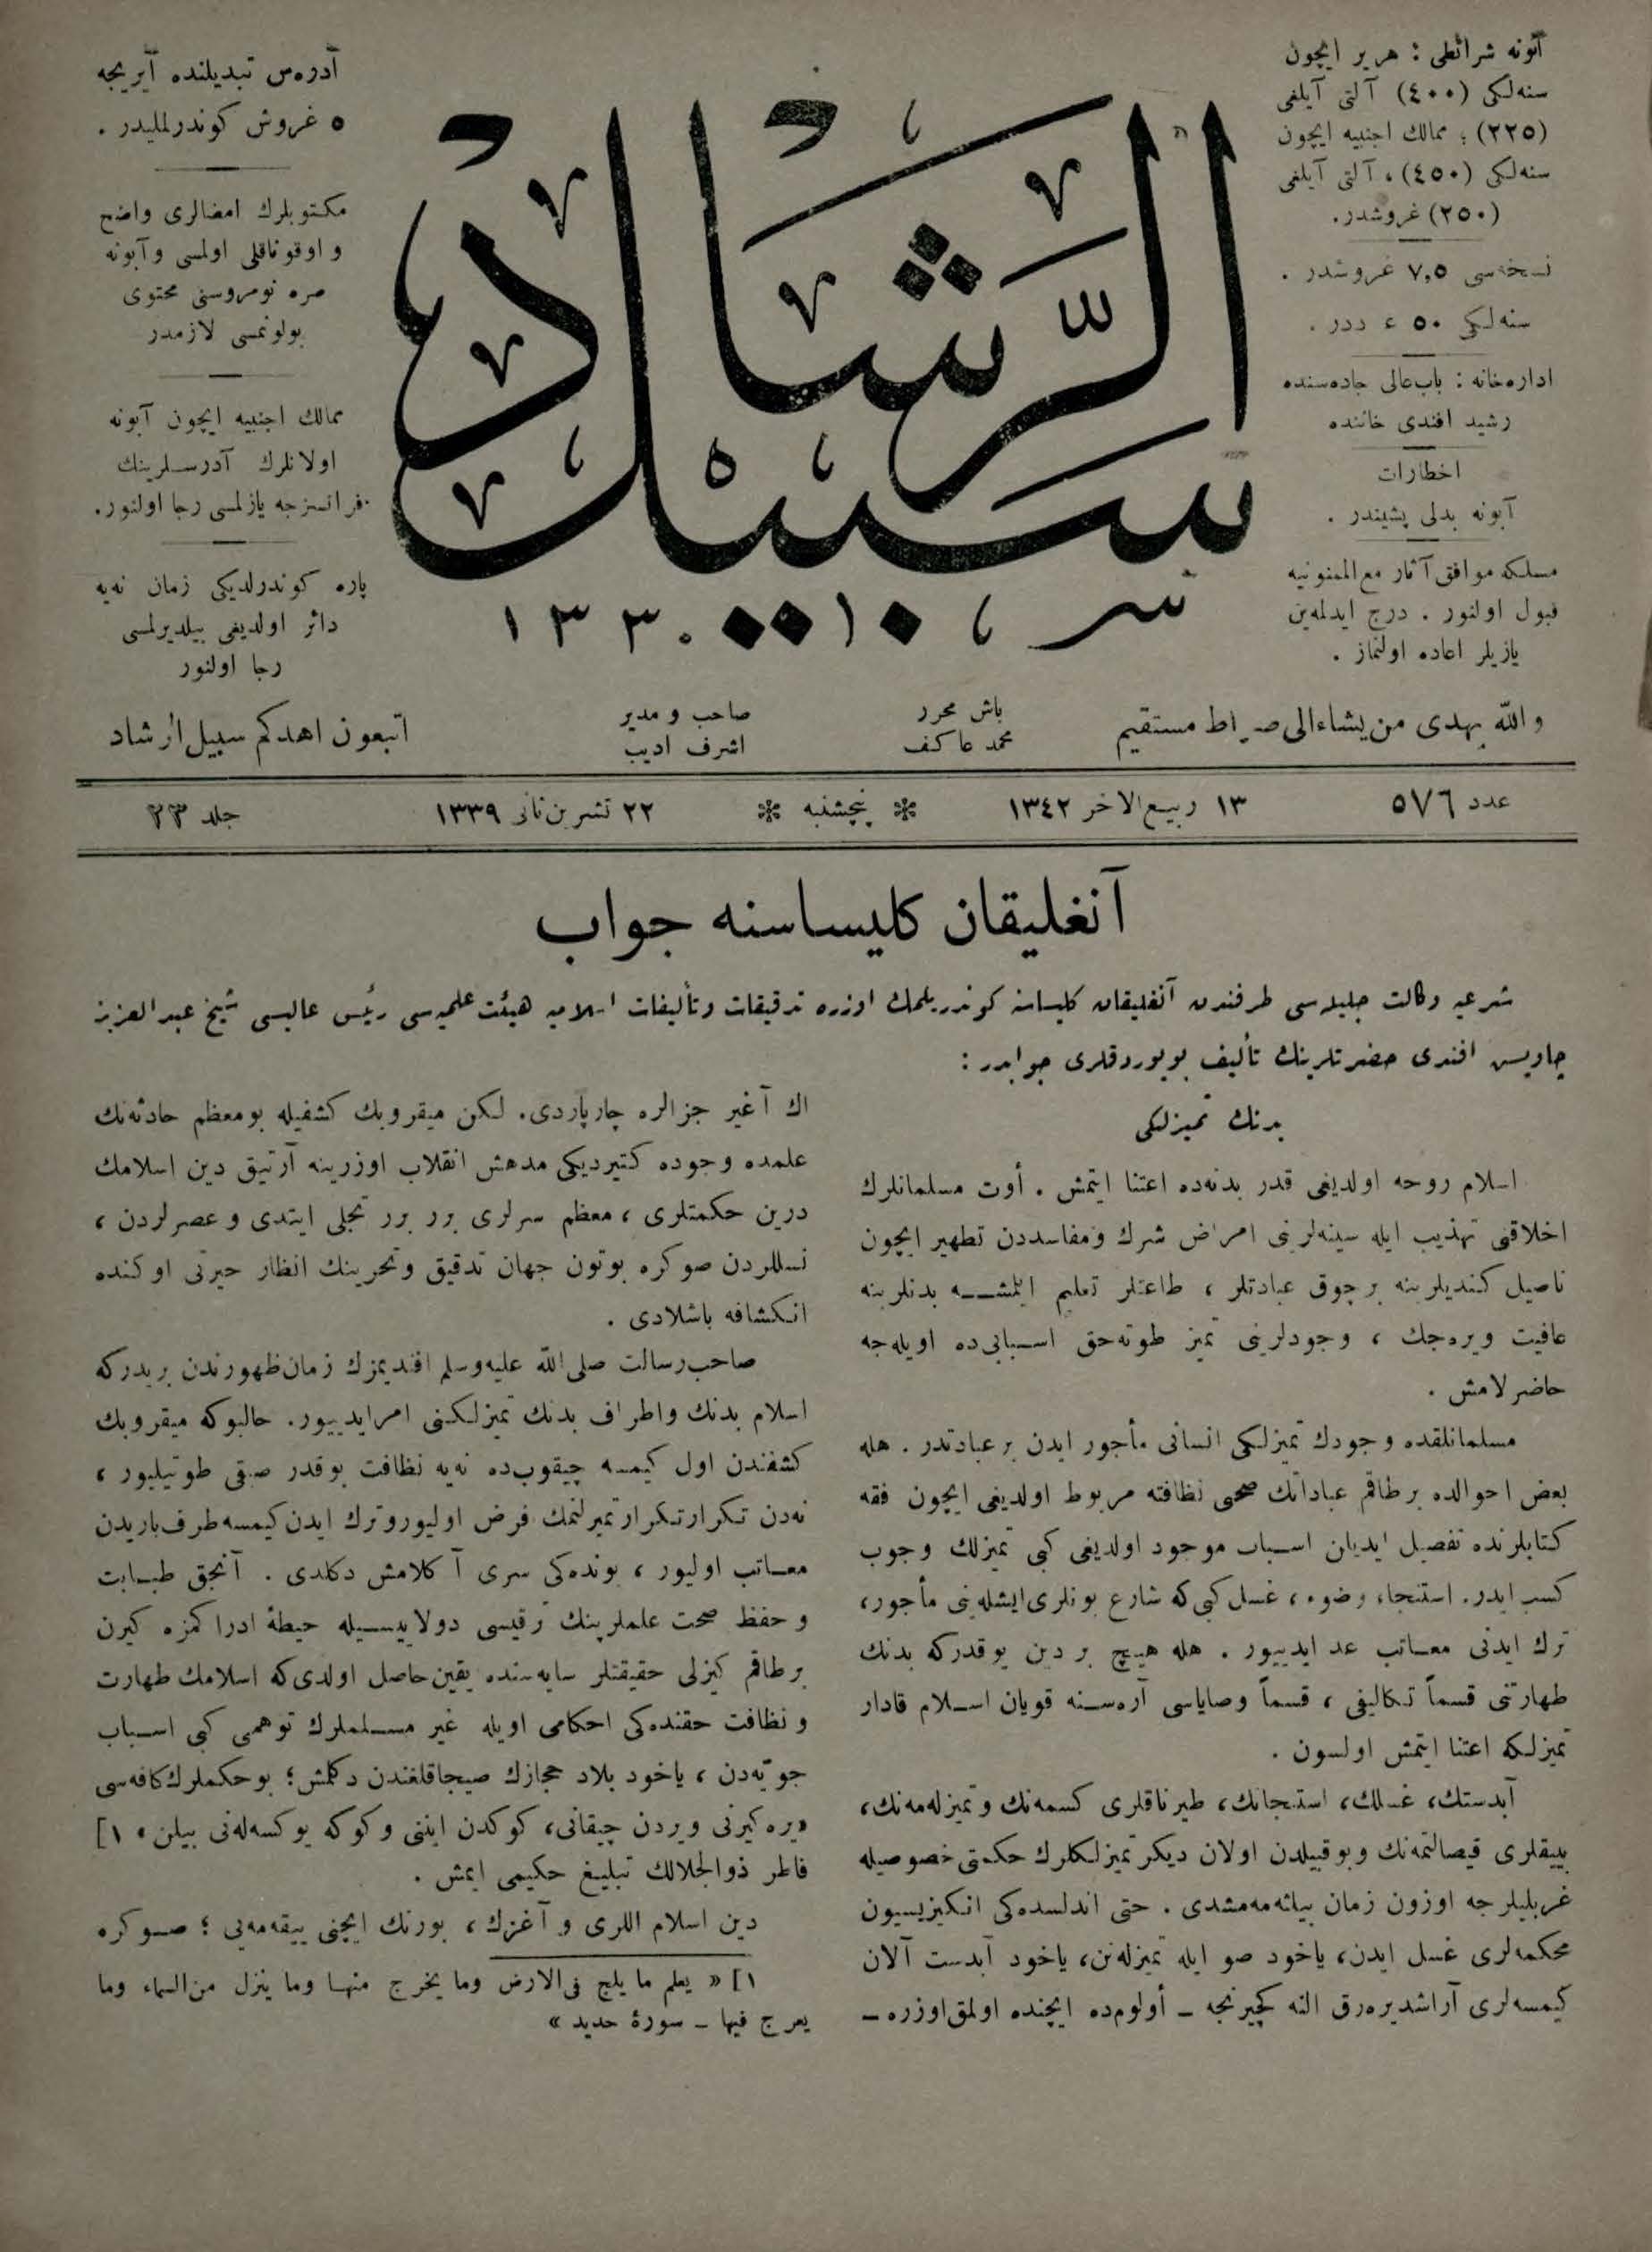 آبونه شرائطى : هر ير ايچون
سنه‌لكى (٤٠٠) آلتى آيلغى
(٢٢٥) ؛ ممالك اجنبيه ايچون
سنه‌لكى (٤٥٠) ، آلتى آيلغى
(٢٥٠) غروشدر .
نسخه‌سى ٧،٥ غروشدر .
سنه‌لكى ٥٠ عدددر .
اداره‌خانه : باب‌عالى جاده‌سنده
رشيد افندى خاننده
اخطارات
آبونه بدلى پشيندر .
مسلكه موافق آثار مع‌الممنونيه
قبول اولنور . درج ايدلمه‌ين
يازيلر اعاده اولنماز .
آدره‌س تبديلنده آيريجه
٥ غروش كوندرلمليدر .
مكتوبلرك امضالرى واضح
و اوقوناقلى اولمسى وآبونه
صره نومروسنى محتوى
بولونمسى لازمدر
ممالك اجنبيه ايچون آبونه
اولانلرك آدرســلرينك
فرانسزجه يازلمسى رجا اولنور.
پاره كوندرلديكى زمان نه‌يه
دائر اولديغى بيلديرلمسى
رجا اولنور
سبيل الرّشاد
١٣٣٠
والله يهدى من يشاء الى صراط مستقيم
باش محرر
محمد عاكف
صاحب و مدير
اشرف اديب
اتبعون اهدكم سبيل الرشاد
عدد ٥٧٦
١٣ ربيع‌الاخر ١٣٤٢
❊ پنچشنبه ❊
٢٢ تشرين‌ثانى ١٣٣٩
جلد ٢٣
آنغليقان كليساسنه جواب
شرعيه وكالت جليله‌سى طرفندن آنغليقان كليساسنه كوندريلمك اوزره تدقيقات وتأليفات اسلاميه هيئت علميه‌سى رئيس عاليسى شيخ عبدالعزيز
چاويس افندى حضرتلرينك تأليف بويوردقلرى جوابدر :
بدنك تميزلكى
اسلام روحه اولديغى قدر بدنه‌ده اعتنا ايتمش . أوت مسلمانلرك
اخلاقنى تهذيب ايله سينه‌لرينى امراض شرك ومفاسددن تطهير ايچون
ناصيل كنديلرينه برچوق عبادتلر ، طاعتلر تعليم ايتمشــه بدنلرينه
عافيت ويره‌جك ، وجودلرينى تميز طوته‌جق اسبابى‌ده اويله‌جه
حاضرلامش .
مسلمانلقده وجودك تميزلكى انسانى مأجور ايدن بر عبادتدر . هله
بعض احوالده بر طاقم عباداتك صحى نظافته مربوط اولديغى ايچون فقه
كتابلرنده تفصيل ايديلن اسباب موجود اولديغى كبى تميزلك وجوب
كسب ايدر. استنجاء، وضوء، غسل كبى كه شارع بونلرى ايشله‌ينى مأجور،
ترك ايدنى معاتب عد ايدييور . هله هيچ بر دين يوقدركه بدنك
طهارتنى قسماً تكاليفى ، قسماً وصاياسى آره‌ســنه قويان اسلام قادار
تميزلكه اعتنا ايتمش اولسون .
آبدستك، غسلك، استنجانك، طيرناقلرى كسمه‌نك و تميزله‌مه‌نك،
بييقلرى قيصالتمه‌نك وبوقبيلدن اولان ديكر تميزلكلرك حكمتى خصوصيله
غربليلرجه اوزون زمان بيلنه‌مه‌مشدى . حتى اندلسده‌كى انكيزيسيون
محكمه‌لرى غسل ايدن، ياخود صو ايله تميزله‌نن، ياخود آبدست آلان
كيمسه‌لرى آراشديره‌رق الله كچيرنجه ـ أولوم‌ده ايچنده اولمق اوزره ـ
اك آغير جزالره چارپاردى. لكن ميقروبك كشفيله بومعظم حادثه‌نك
علمده وجوده كتيرديكى مدهش انقلاب اوزرينه آرتيق دين اسلامك
درين حكمتلرى ، معظم سرلرى برر برر تجلى ايتدى و عصرلردن ،
نسللردن صوكره بوتون جهان تدقيق وتحرينك انظار حيرتى اوكنده
انكشافه باشلادى .
صاحب‌رسالت صلى‌الله عليه‌وسلم افنديمزك زمان‌ظهورندن بريدركه
اسلام بدنك واطراف بدنك تميزلكنى امرايدييور. حالبوكه ميقروبك
كشفندن اول كيمسه چيقوب‌ده نه‌يه نظافت بوقدر صيقى طوتيليور ،
نه‌دن تكرارتكرار تميزلنمك فرض اوليوروترك ايدن كيمسه طرف‌باريدن
معاتب اوليور ، بونده‌كى سرى آكلامش دكلدى . آنجق طبابت
و حفظ صحت علملرينك ترقيسى دولاييسيله حيطهٔ ادراكمزه كيرن
بر طاقم كيزلى حقيقتلر سايه‌سنده يقين حاصل اولدى كه اسلامك طهارت
و نظافت حقنده‌كى احكامى اويله غير مســلملرك توهمى كبى اسباب
جويه‌دن ، ياخود بلاد حجازك صيجاقلغندن دكلمش؛ بوحكملرك‌كافه‌سى
«يره كيرنى ويردن چيقانى، كوكدن ايننى وكوكه يوكسه‌له‌نى بيلن» ١]
فاطر ذوالجلالك تبليغ حكيمى ايمش .
دين اسلام اللرى و آغزك ، بورنك ايچنى ييقه‌مه‌يى ؛ صــوكره
١] « يعلم ما يلج فى‌الارض وما يخرج منهــا وما ينزل من‌السماء وما
يعرج فيها ـ سورهٔ حديد »